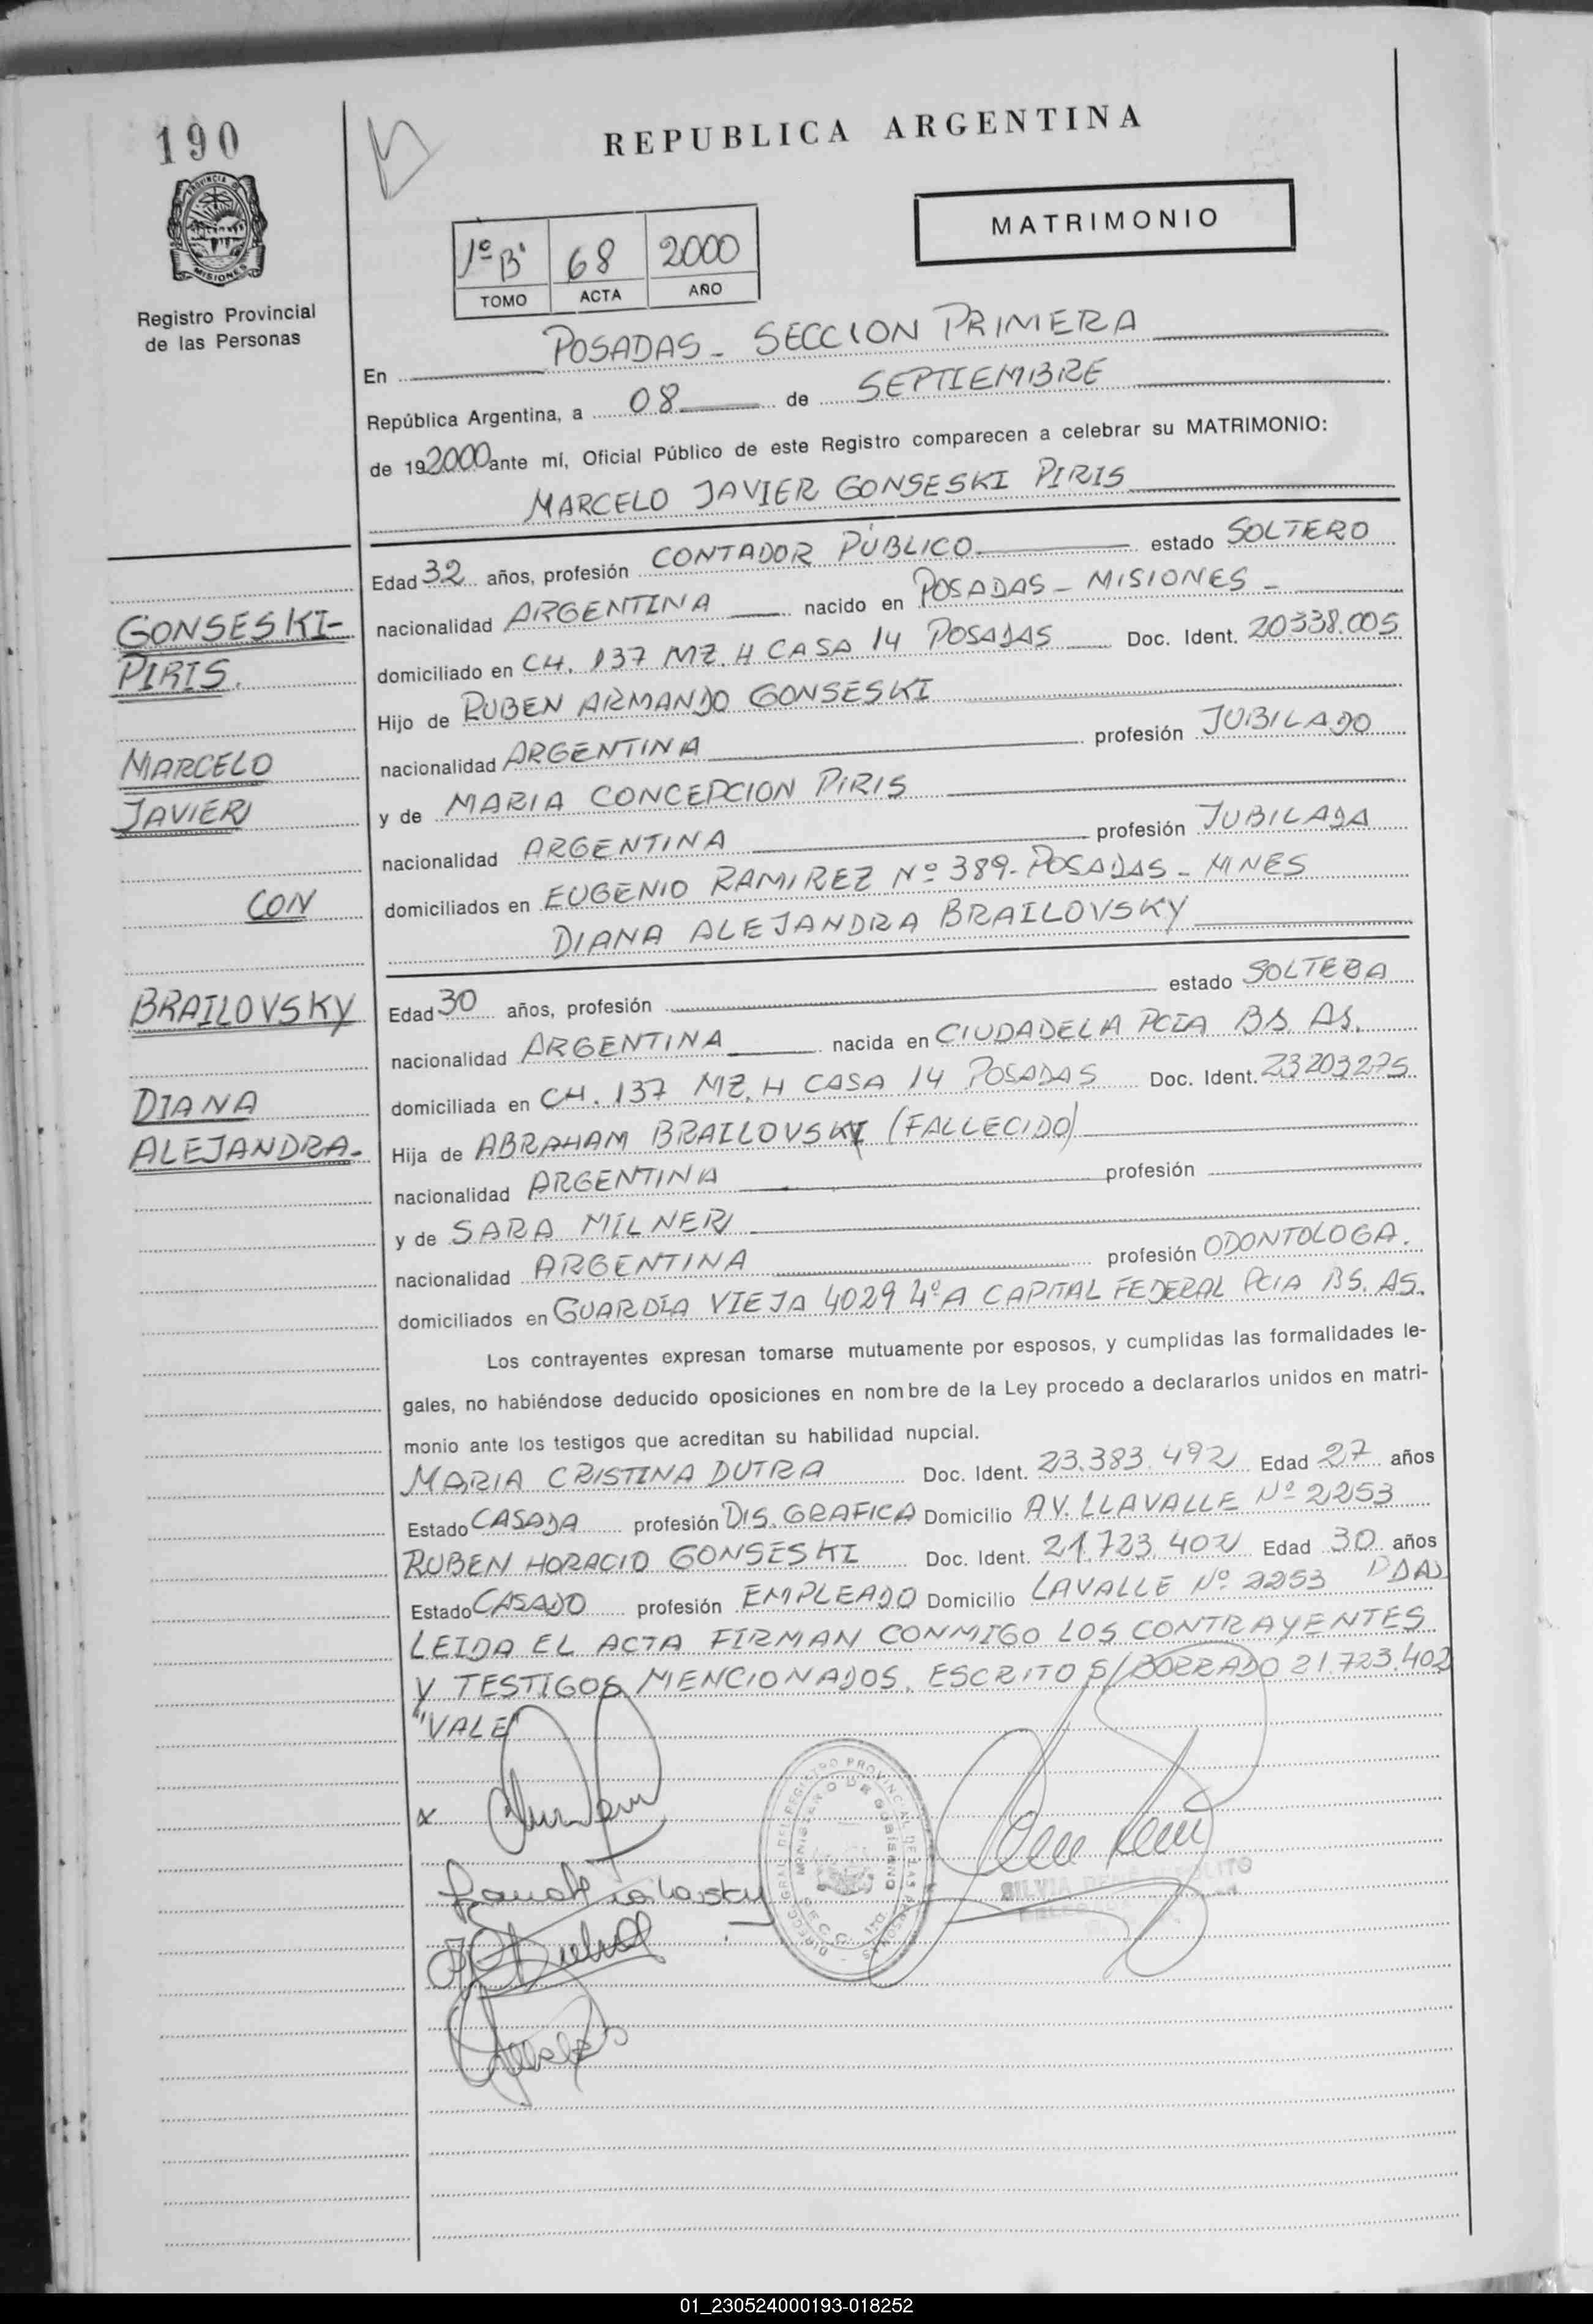 190
REPUBLICA ARGENTINA
PROVINCIA DE
MISIONES
MATRIMONIO
1º B' 68 2000
TOMO ACTA AÑO
Registro Provincial
de las Personas
En POSADAS - SECCION PRIMERA
República Argentina, a 08 de SEPTIEMBRE
de 192000 ante mí, Oficial Público de este Registro comparecen a celebrar su MATRIMONIO:
MARCELO JAVIER GONSESKI PIRIS
Edad 32 años, profesión CONTADOR PÚBLICO estado SOLTERO
nacionalidad ARGENTINA nacido en POSADAS - MISIONES -
domiciliado en CH. 137 MZ. H CASA 14 POSADAS Doc. Ident. 20338.005
Hijo de RUBEN ARMANDO GONSESKI
nacionalidad ARGENTINA profesión JUBILADO
y de MARIA CONCEPCION PIRIS
nacionalidad ARGENTINA profesión JUBILADA
domiciliados en EUGENIO RAMIREZ Nº 389 - POSADAS - MNES
DIANA ALEJANDRA BRAILOVSKY
GONSESKI-
PIRIS.
MARCELO
JAVIER
CON
BRAILOVSKY
DIANA
ALEJANDRA-
Edad 30 años, profesión estado SOLTERA
nacionalidad ARGENTINA nacida en CIUDADELA PCIA BS. AS.
domiciliada en CH. 137 MZ. H CASA 14 POSADAS Doc. Ident. 23203275
Hija de ABRAHAM BRAILOVSKY (FALLECIDO)
nacionalidad ARGENTINA profesión
y de SARA MILNER
nacionalidad ARGENTINA profesión ODONTOLOGA.
domiciliados en GUARDIA VIEJA 4029 4º A CAPITAL FEDERAL PCIA BS. AS.
Los contrayentes expresan tomarse mutuamente por esposos, y cumplidas las formalidades le-
gales, no habiéndose deducido oposiciones en nombre de la Ley procedo a declararlos unidos en matri-
monio ante los testigos que acreditan su habilidad nupcial.
MARIA CRISTINA DUTRA Doc. Ident. 23.383.492 Edad 27 años
Estado CASADA profesión DIS. GRAFICA Domicilio AV. LLAVALLE Nº 2253
RUBEN HORACIO GONSESKI Doc. Ident. 21.723.402 Edad 30 años
Estado CASADO profesión EMPLEADO Domicilio LAVALLE Nº 2253 PDAS
LEIDA EL ACTA FIRMAN CONMIGO LOS CONTRAYENTES
Y TESTIGOS MENCIONADOS. ESCRITO S/BORRADO 21.723.402
"VALE"
MINISTERIO DE GOBIERNO
SILVIA
01_230524000193-018252